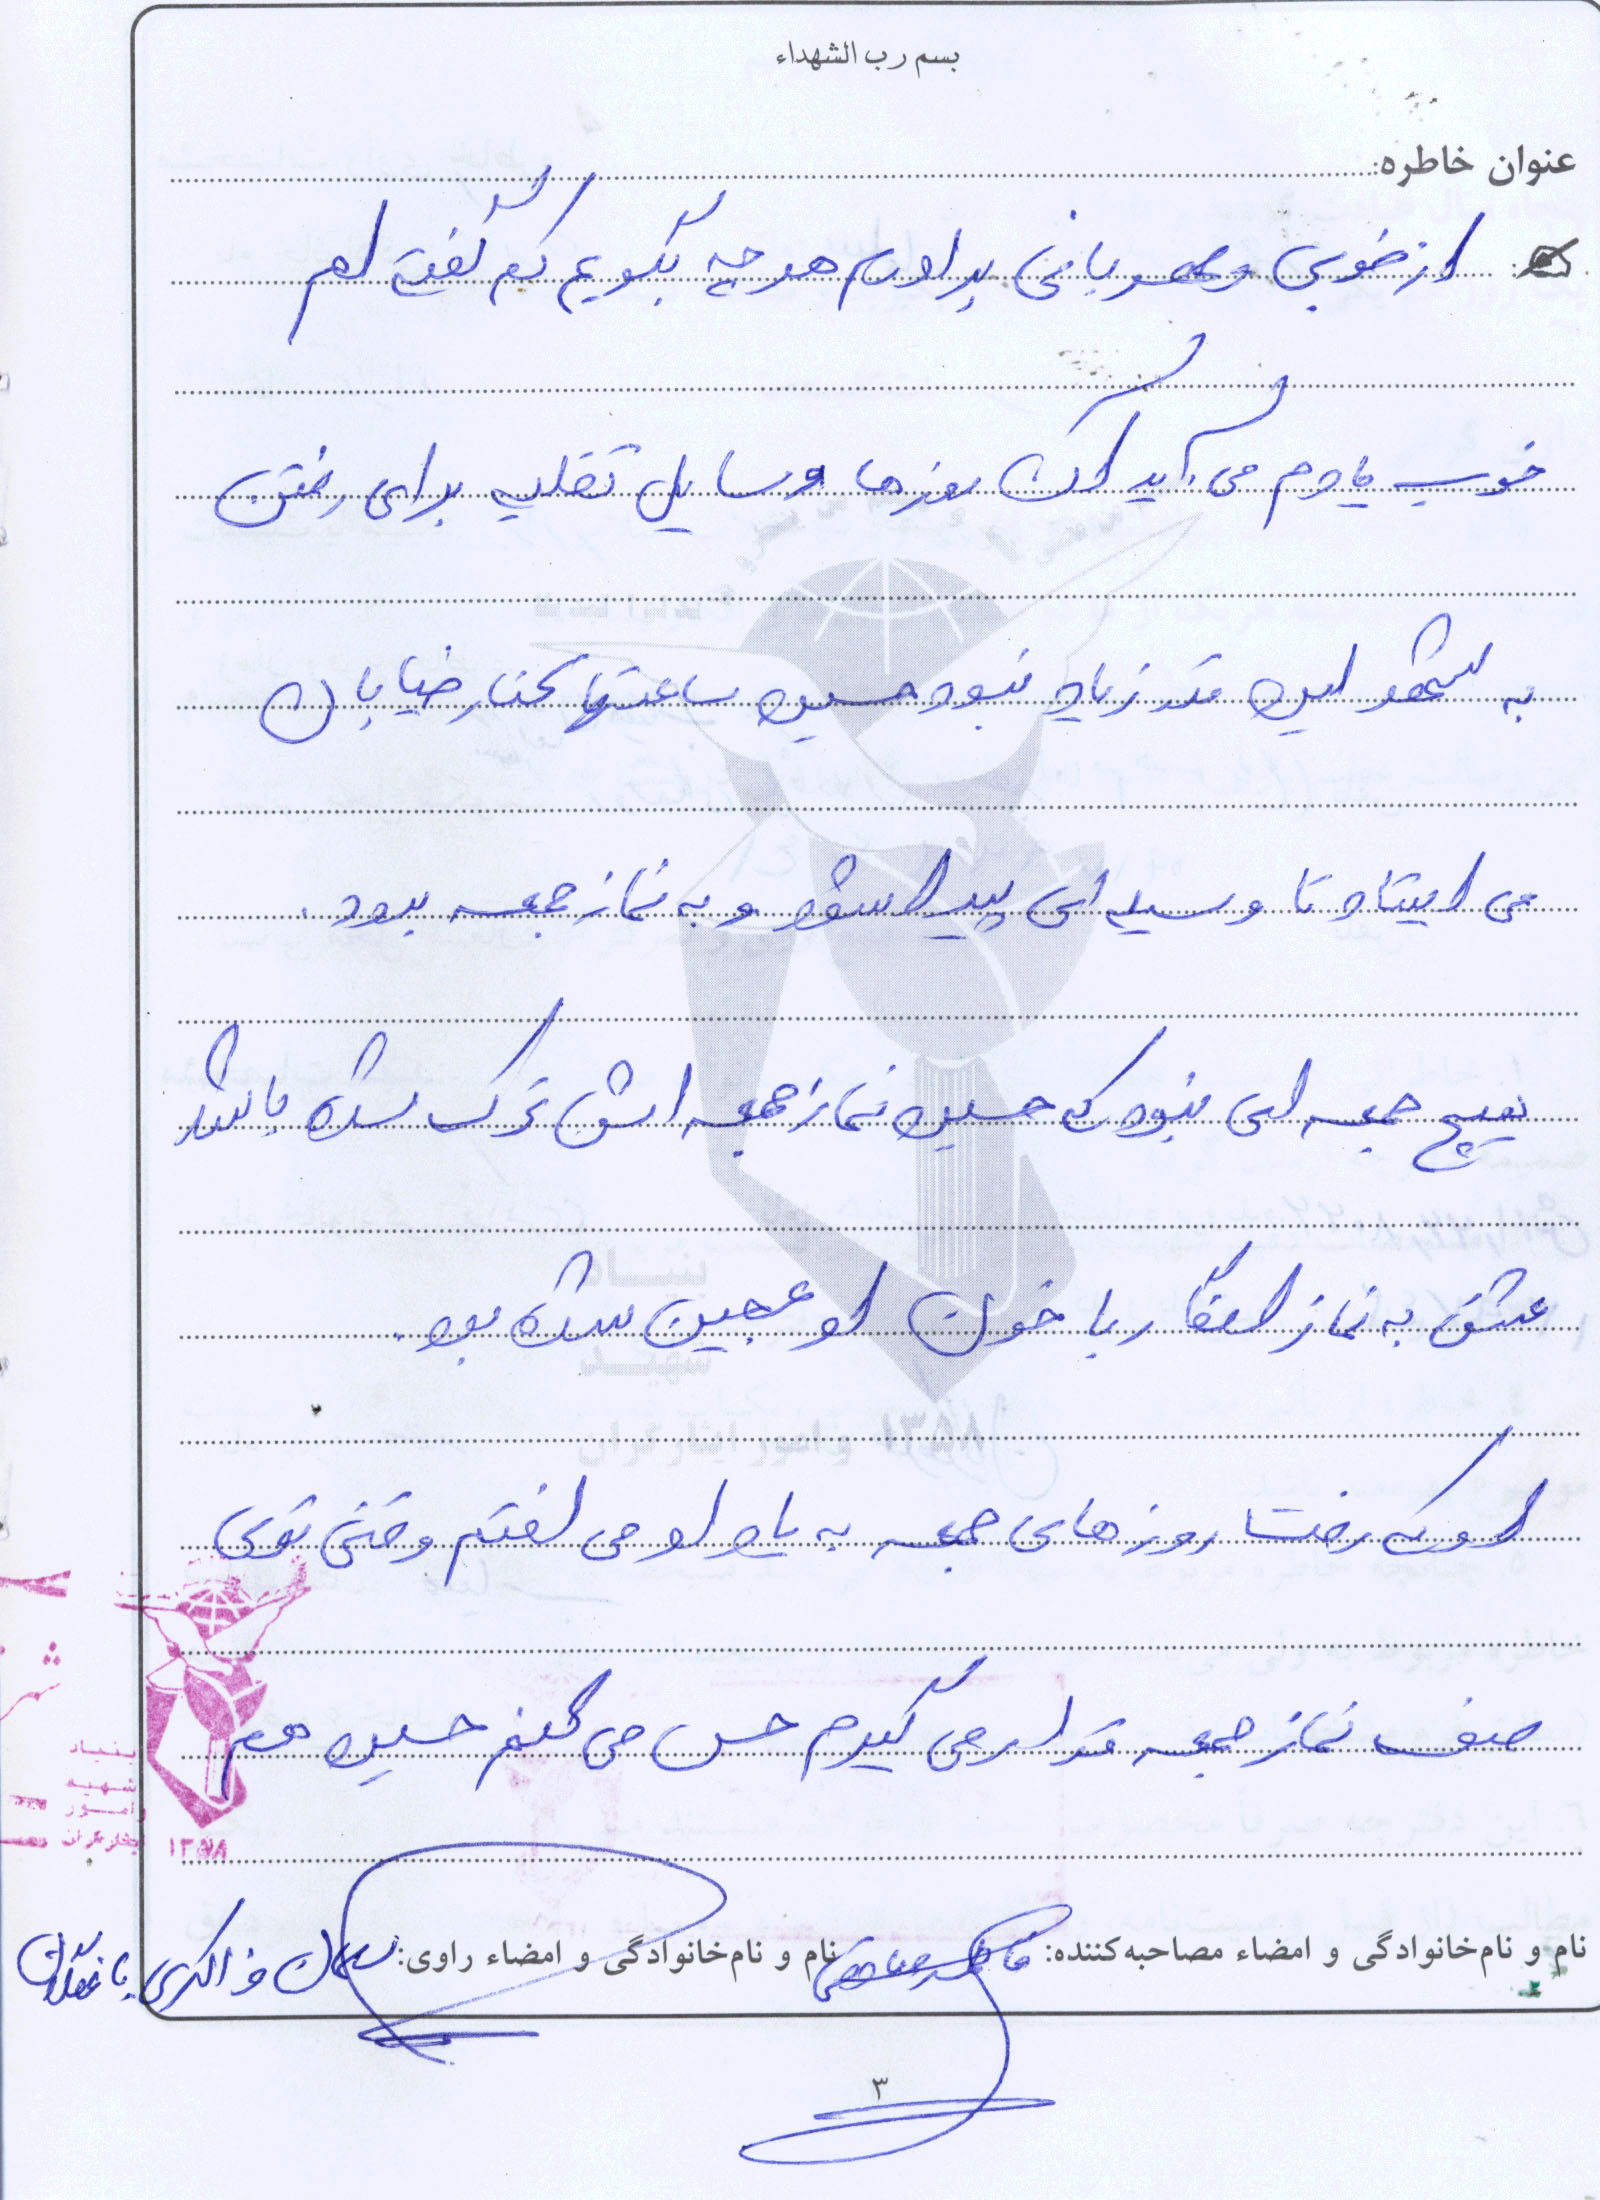 بسم رب الشهداء
عنوان خاطره:
از خوبی و مهربانی برادرم هر چه بگویم کم گفته ام
خوب یادم می آید آن روزها وسایل نقلیه برای رفتن
به شهر این قدر زیاد نبود حسین ساعتها کنار خیابان
می ایستاد تا وسیله ای پیدا شود و به نماز جمعه برود.
هیچ جمعه ای نبود که حسین نماز جمعه اش ترک شده باشد
عشق به نماز انگار با خون او عجین شده بود.
او که رفت روزهای جمعه به یاد او می افتم وقتی توی
صف نماز جمعه قرار می گیرم حس می کنم حسین هم
بنیاد
شهید
و امور
ایثارگران
۱۳۵۸
نام و نام‌خانوادگی و امضاء مصاحبه‌کننده: نام و نام‌خانوادگی و امضاء راوی:
۳